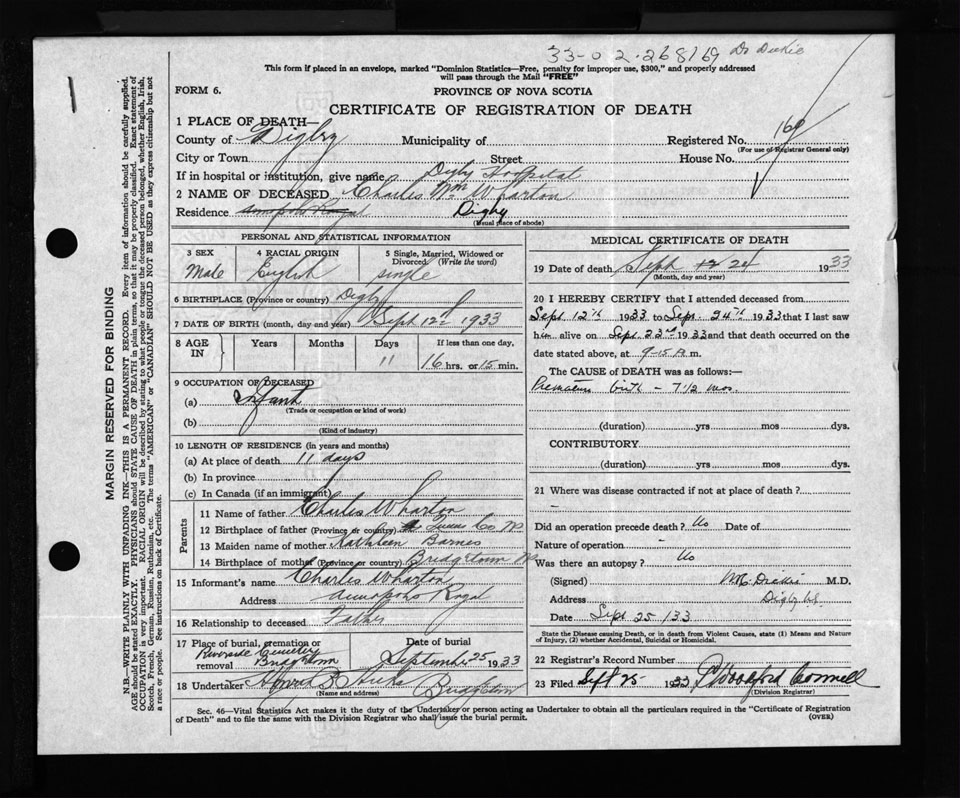 33-0 2.268169 Dr Dickie
This form if placed in an envelope, marked "Dominion Statistics—Free, penalty for improper use, $300," and properly addressed
will pass through the Mail "FREE"
FORM 6.
PROVINCE OF NOVA SCOTIA
CERTIFICATE OF REGISTRATION OF DEATH
1 PLACE OF DEATH—
County of Digby Municipality of Registered No. 169
(For use of Registrar General only)
City or Town Street House No.
If in hospital or institution, give name Digby Hospital
2 NAME OF DECEASED Charles Wm Wharton
Residence Annapolis Royal Digby
(Usual place of abode)
PERSONAL AND STATISTICAL INFORMATION
3 SEX
Male
4 RACIAL ORIGIN
English
5 Single, Married, Widowed or
Divorced (Write the word)
single
6 BIRTHPLACE (Province or country) Digby
7 DATE OF BIRTH (month, day and year) Sept 12th 1933
8 AGE IN
Years Months Days If less than one day,
11 16 hrs. or 15 min.
9 OCCUPATION OF DECEASED
(a) Infant
(Trade or occupation or kind of work)
(b)
(Kind of industry)
10 LENGTH OF RESIDENCE (in years and months)
(a) At place of death 11 days
(b) In province
(c) In Canada (if an immigrant)
Parents
11 Name of father Charles Wharton
12 Birthplace of father (Province or country) Queens Co
13 Maiden name of mother Kathleen Barnes
14 Birthplace of mother (Province or country)
15 Informant's name Charles Wharton
Address Annapolis Royal
16 Relationship to deceased Father
17 Place of burial, cremation or
removal Riverside Cemetery
Bridgetown
Date of burial
September 25 1933
18 Undertaker Bridgetown
(Name and address)
MEDICAL CERTIFICATE OF DEATH
19 Date of death Sept 24 1933
(Month, day and year)
20 I HEREBY CERTIFY that I attended deceased from
Sept. 12th 1933 to Sept. 24th 1933 that I last saw
him alive on Sept. 23rd 1933 and that death occurred on the
date stated above, at 9-15 m.
The CAUSE of DEATH was as follows:—
Premature birth - 7 1/2 mos.
(duration) yrs mos dys.
CONTRIBUTORY
(duration) yrs. mos. dys.
21 Where was disease contracted if not at place of death?
Did an operation precede death? No Date of
Nature of operation
Was there an autopsy? No
(Signed) Dickie M.D.
Address Digby NS
Date Sept 25 133
State the Disease causing Death, or in death from Violent Causes, state (1) Means and Nature
of Injury, (2) whether Accidental, Suicidal or Homicidal.
22 Registrar's Record Number
23 Filed Sept 25 1933
(Division Registrar)
Sec. 46—Vital Statistics Act makes it the duty of the Undertaker or person acting as Undertaker to obtain all the particulars required in the "Certificate of Registration
of Death" and to file the same with the Division Registrar who shall issue the burial permit.
(OVER)
MARGIN RESERVED FOR BINDING
N.B.—WRITE PLAINLY WITH UNFADING INK—THIS IS A PERMANENT RECORD. Every item of information should be carefully supplied.
AGE should be stated EXACTLY. PHYSICIANS should STATE CAUSE OF DEATH in plain terms, so that it may be properly classified. Exact statement of
OCCUPATION is very important. RACIAL ORIGIN will be described by stating to what people or tongue deceased person belonged, whether English, Irish,
Scotch, French, German, Russian, Ruthenian, etc. The terms "AMERICAN" or "CANADIAN" SHOULD NOT BE USED as they express citizenship but not
a race or people. See instructions on back of Certificate.